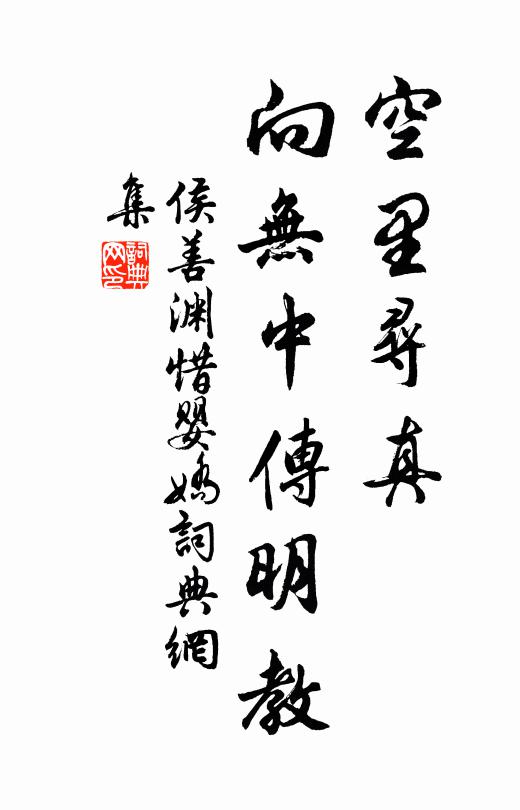 空里尋真
向無中傳明教
侯善渊惜嬰嬌詞典網
集
詞典
网印